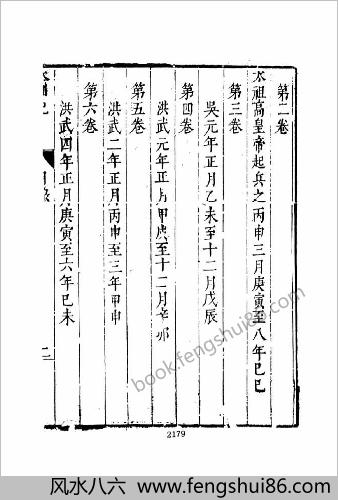 第二卷
太祖高皇帝起兵之丙申三月庚寅至八年巳巳
第三卷
吳元年正月乙未至十二月戊辰
第四卷
洪武元年正月甲庚至十二月辛卯
第五卷
洪武二年正月丙申至三年甲申
第六卷
洪武四年正月庚寅至六年巳未
目錄
2179
book.fengshui86.com
风水八六 www.fengshui86.com